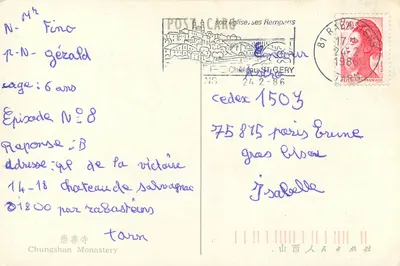 Mr
N- Fino
P-N- Gérald
age: 6 ans
Episode N°8
Reponse: B
adresse: pl de la victoire
14-18 chateau de salvagnac
81800 par rabastens
tarn
崇善寺
Chungshan Monastery
POST CARD
son Eglise, ses Remparts
24-2-86
81 RABASTENS
17H
24-2
1986
TARN
concour
cedex 1503
75815 paris Brune
gros bisou
Isabelle
山西人民出版社